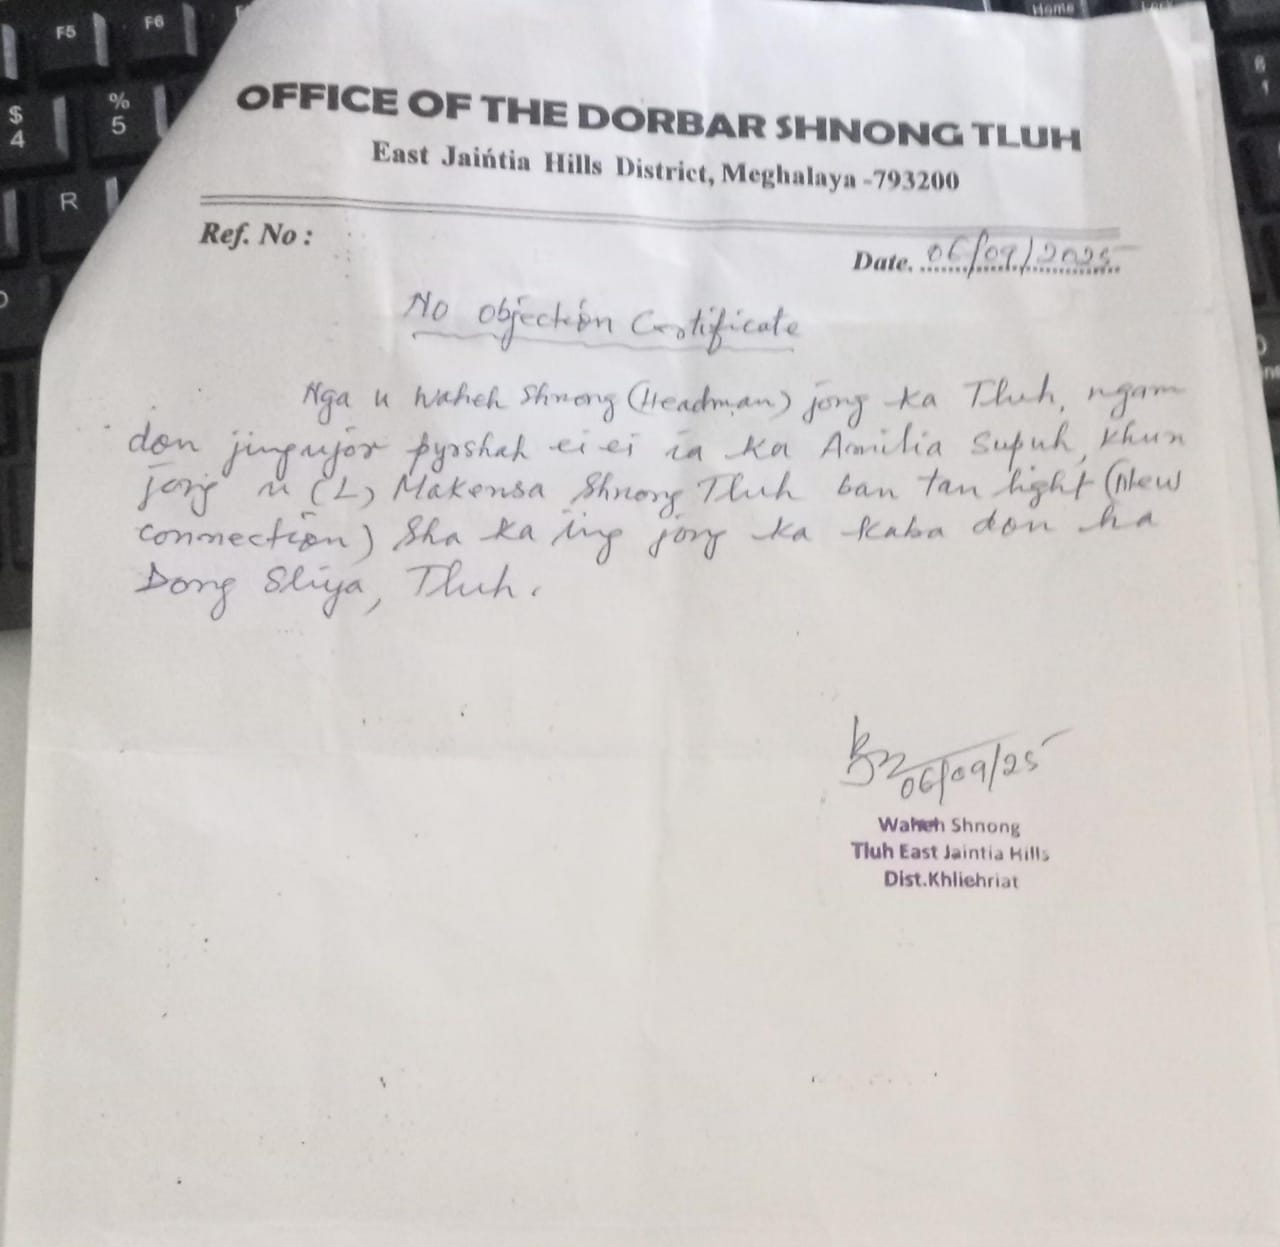 OFFICE OF THE DORBAR SHNONG TLUH
East Jaińtia Hills District, Meghalaya -793200
Ref. No :
Date. 06/09/2025
No Objection Certificate
Nga u Waheh Shnong (Headman) jong ka Tluh, ngam
don jingujor pyrshah ei ei ia ka Amilia Supuh, khun
jong u (L) Makensa Shnong Tluh ban tan light (New
connection) Sha ka ing jong ka kaba don ha
Dong Sliya, Tluh.
06/09/25
Waheh Shnong
Tluh East Jaintia Hills
Dist.Khliehriat
F5
F6
Home
$
4
%
5
R